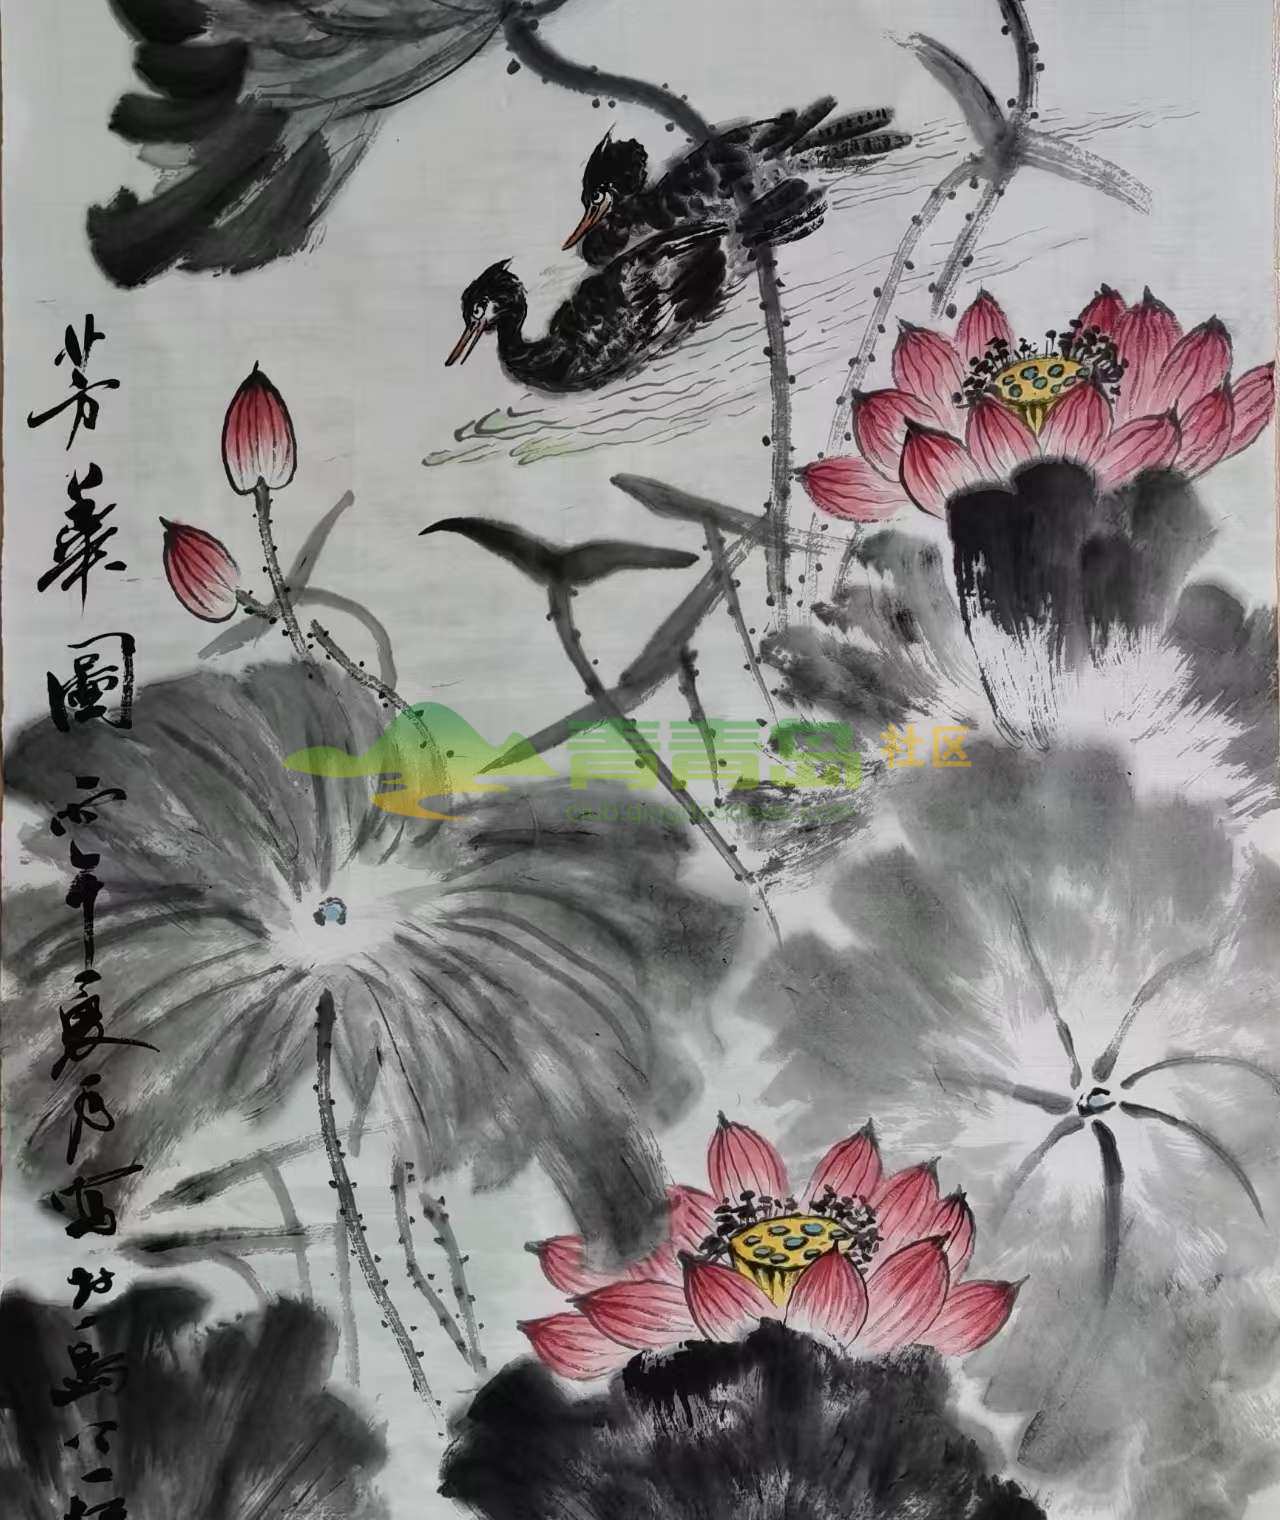 芳華圖 丙午年夏月寫於島
青青岛社区
club.qingdaonews.com